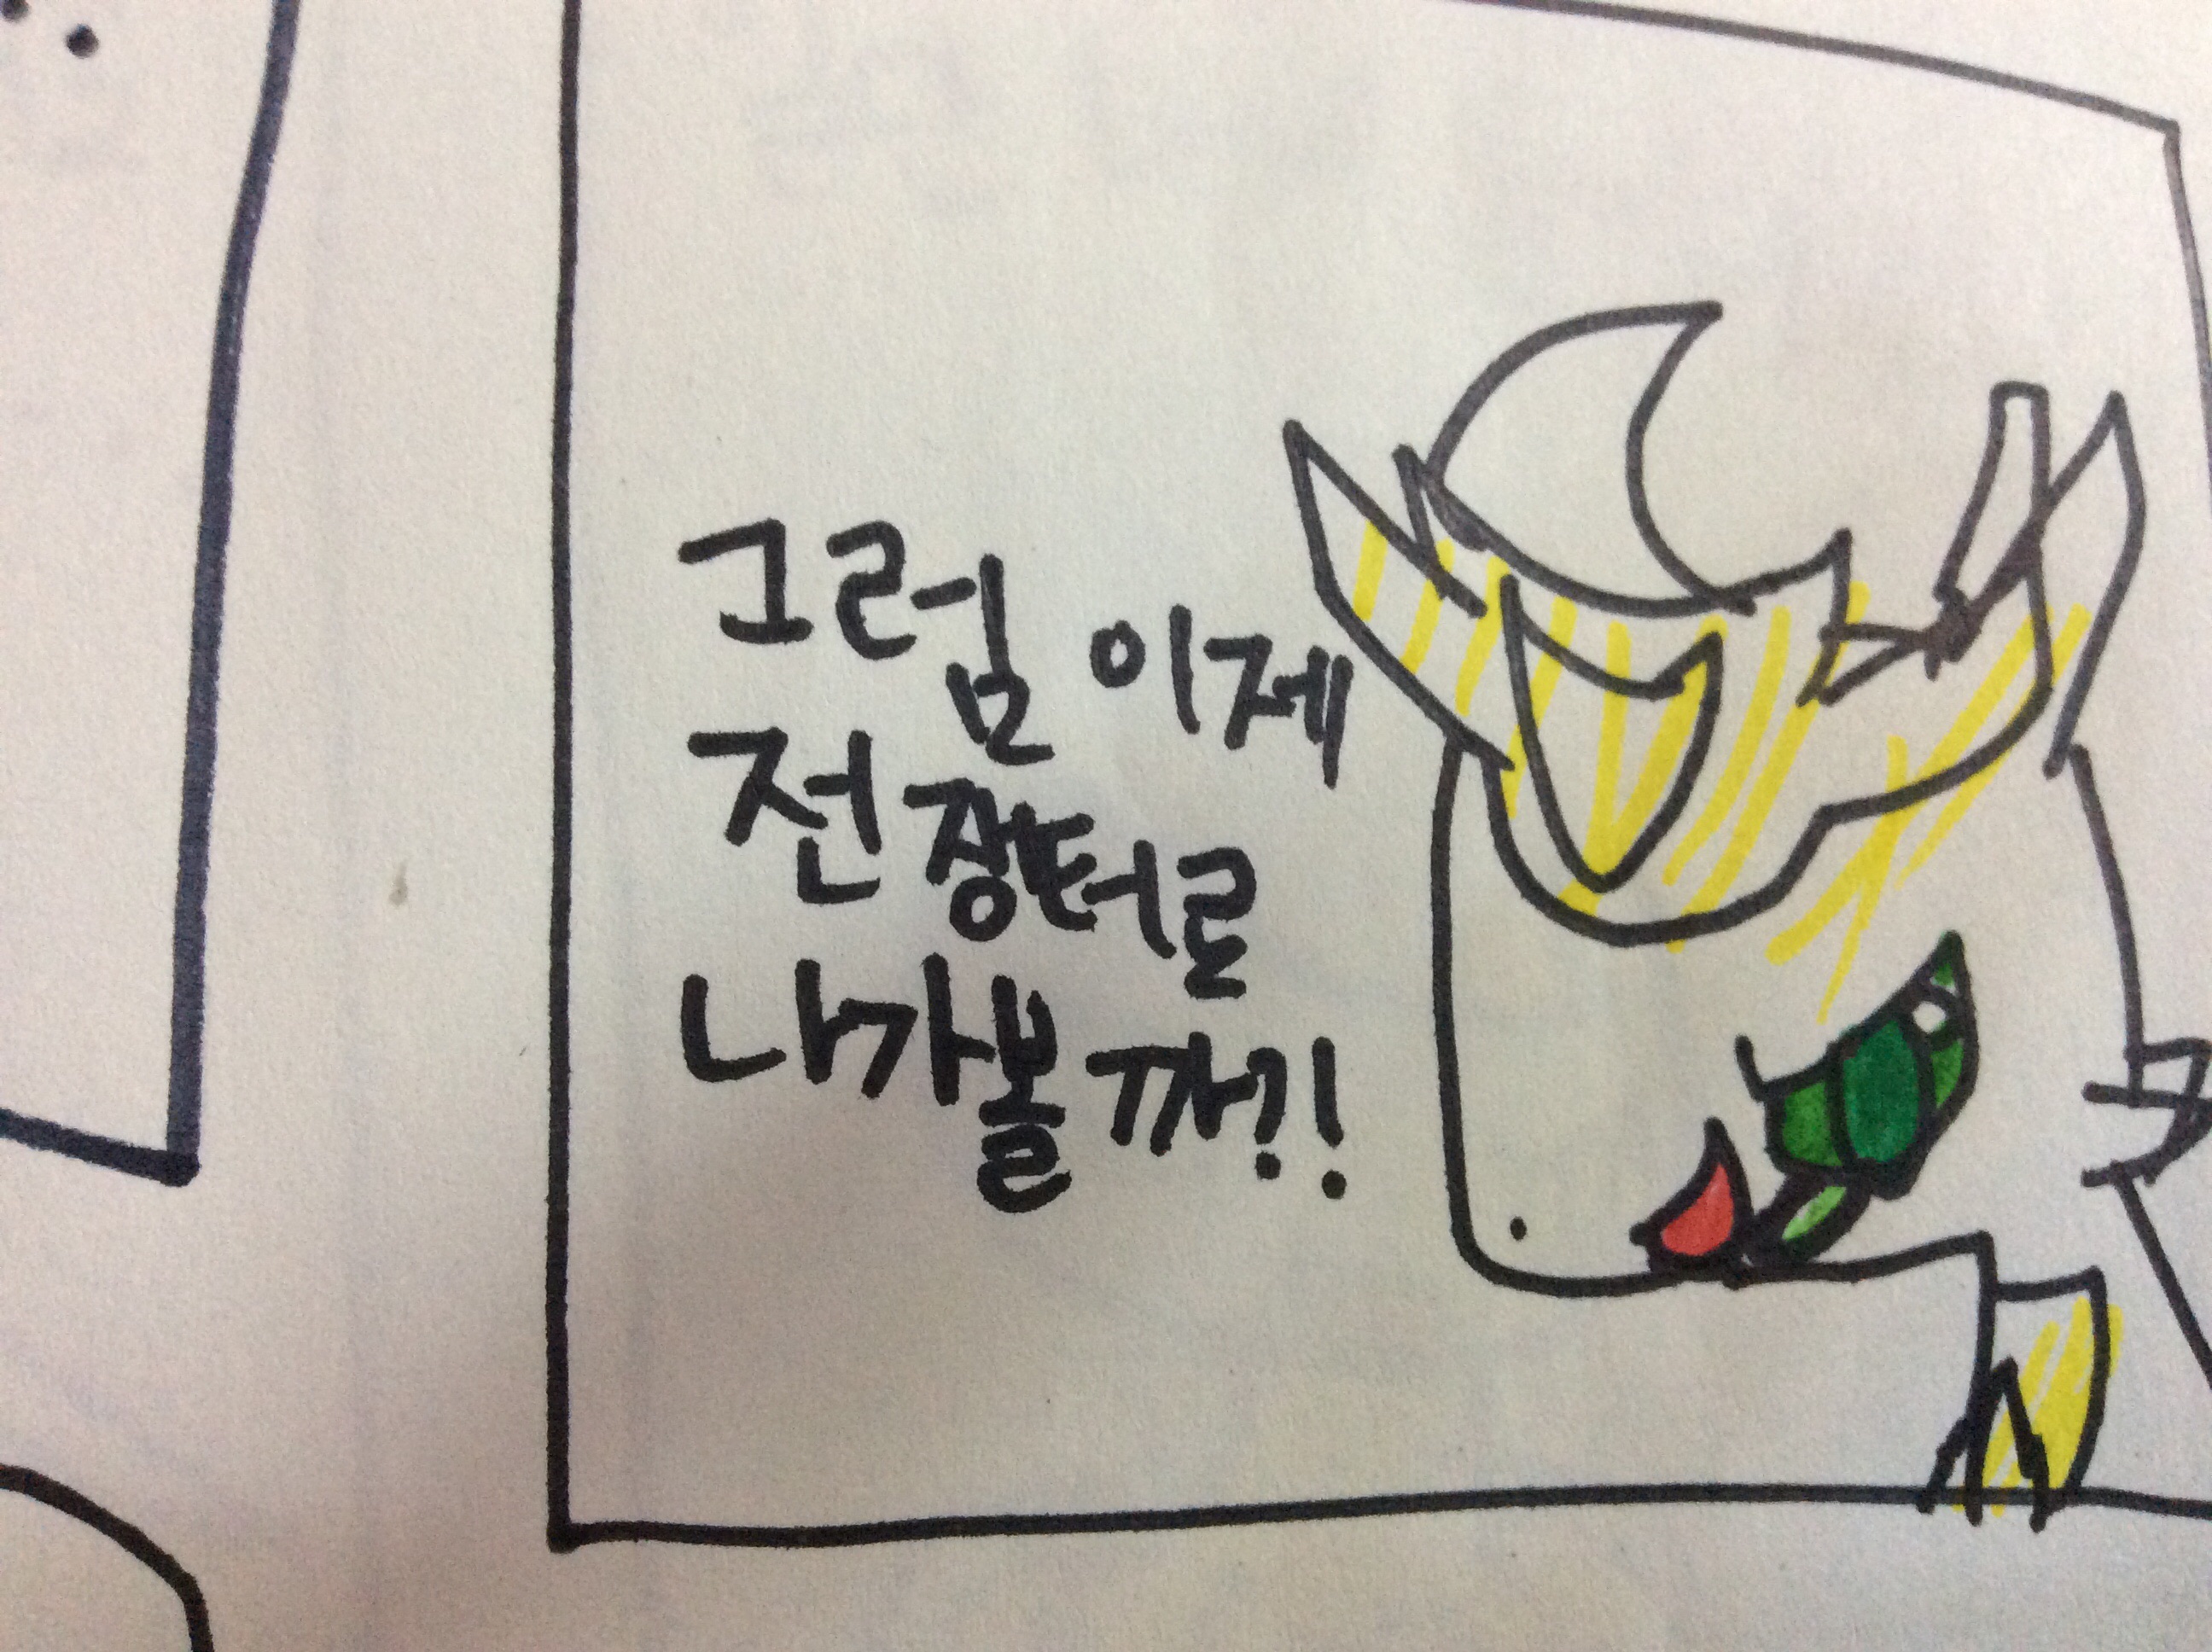 그럼 이제
전장터로
나가볼까?!